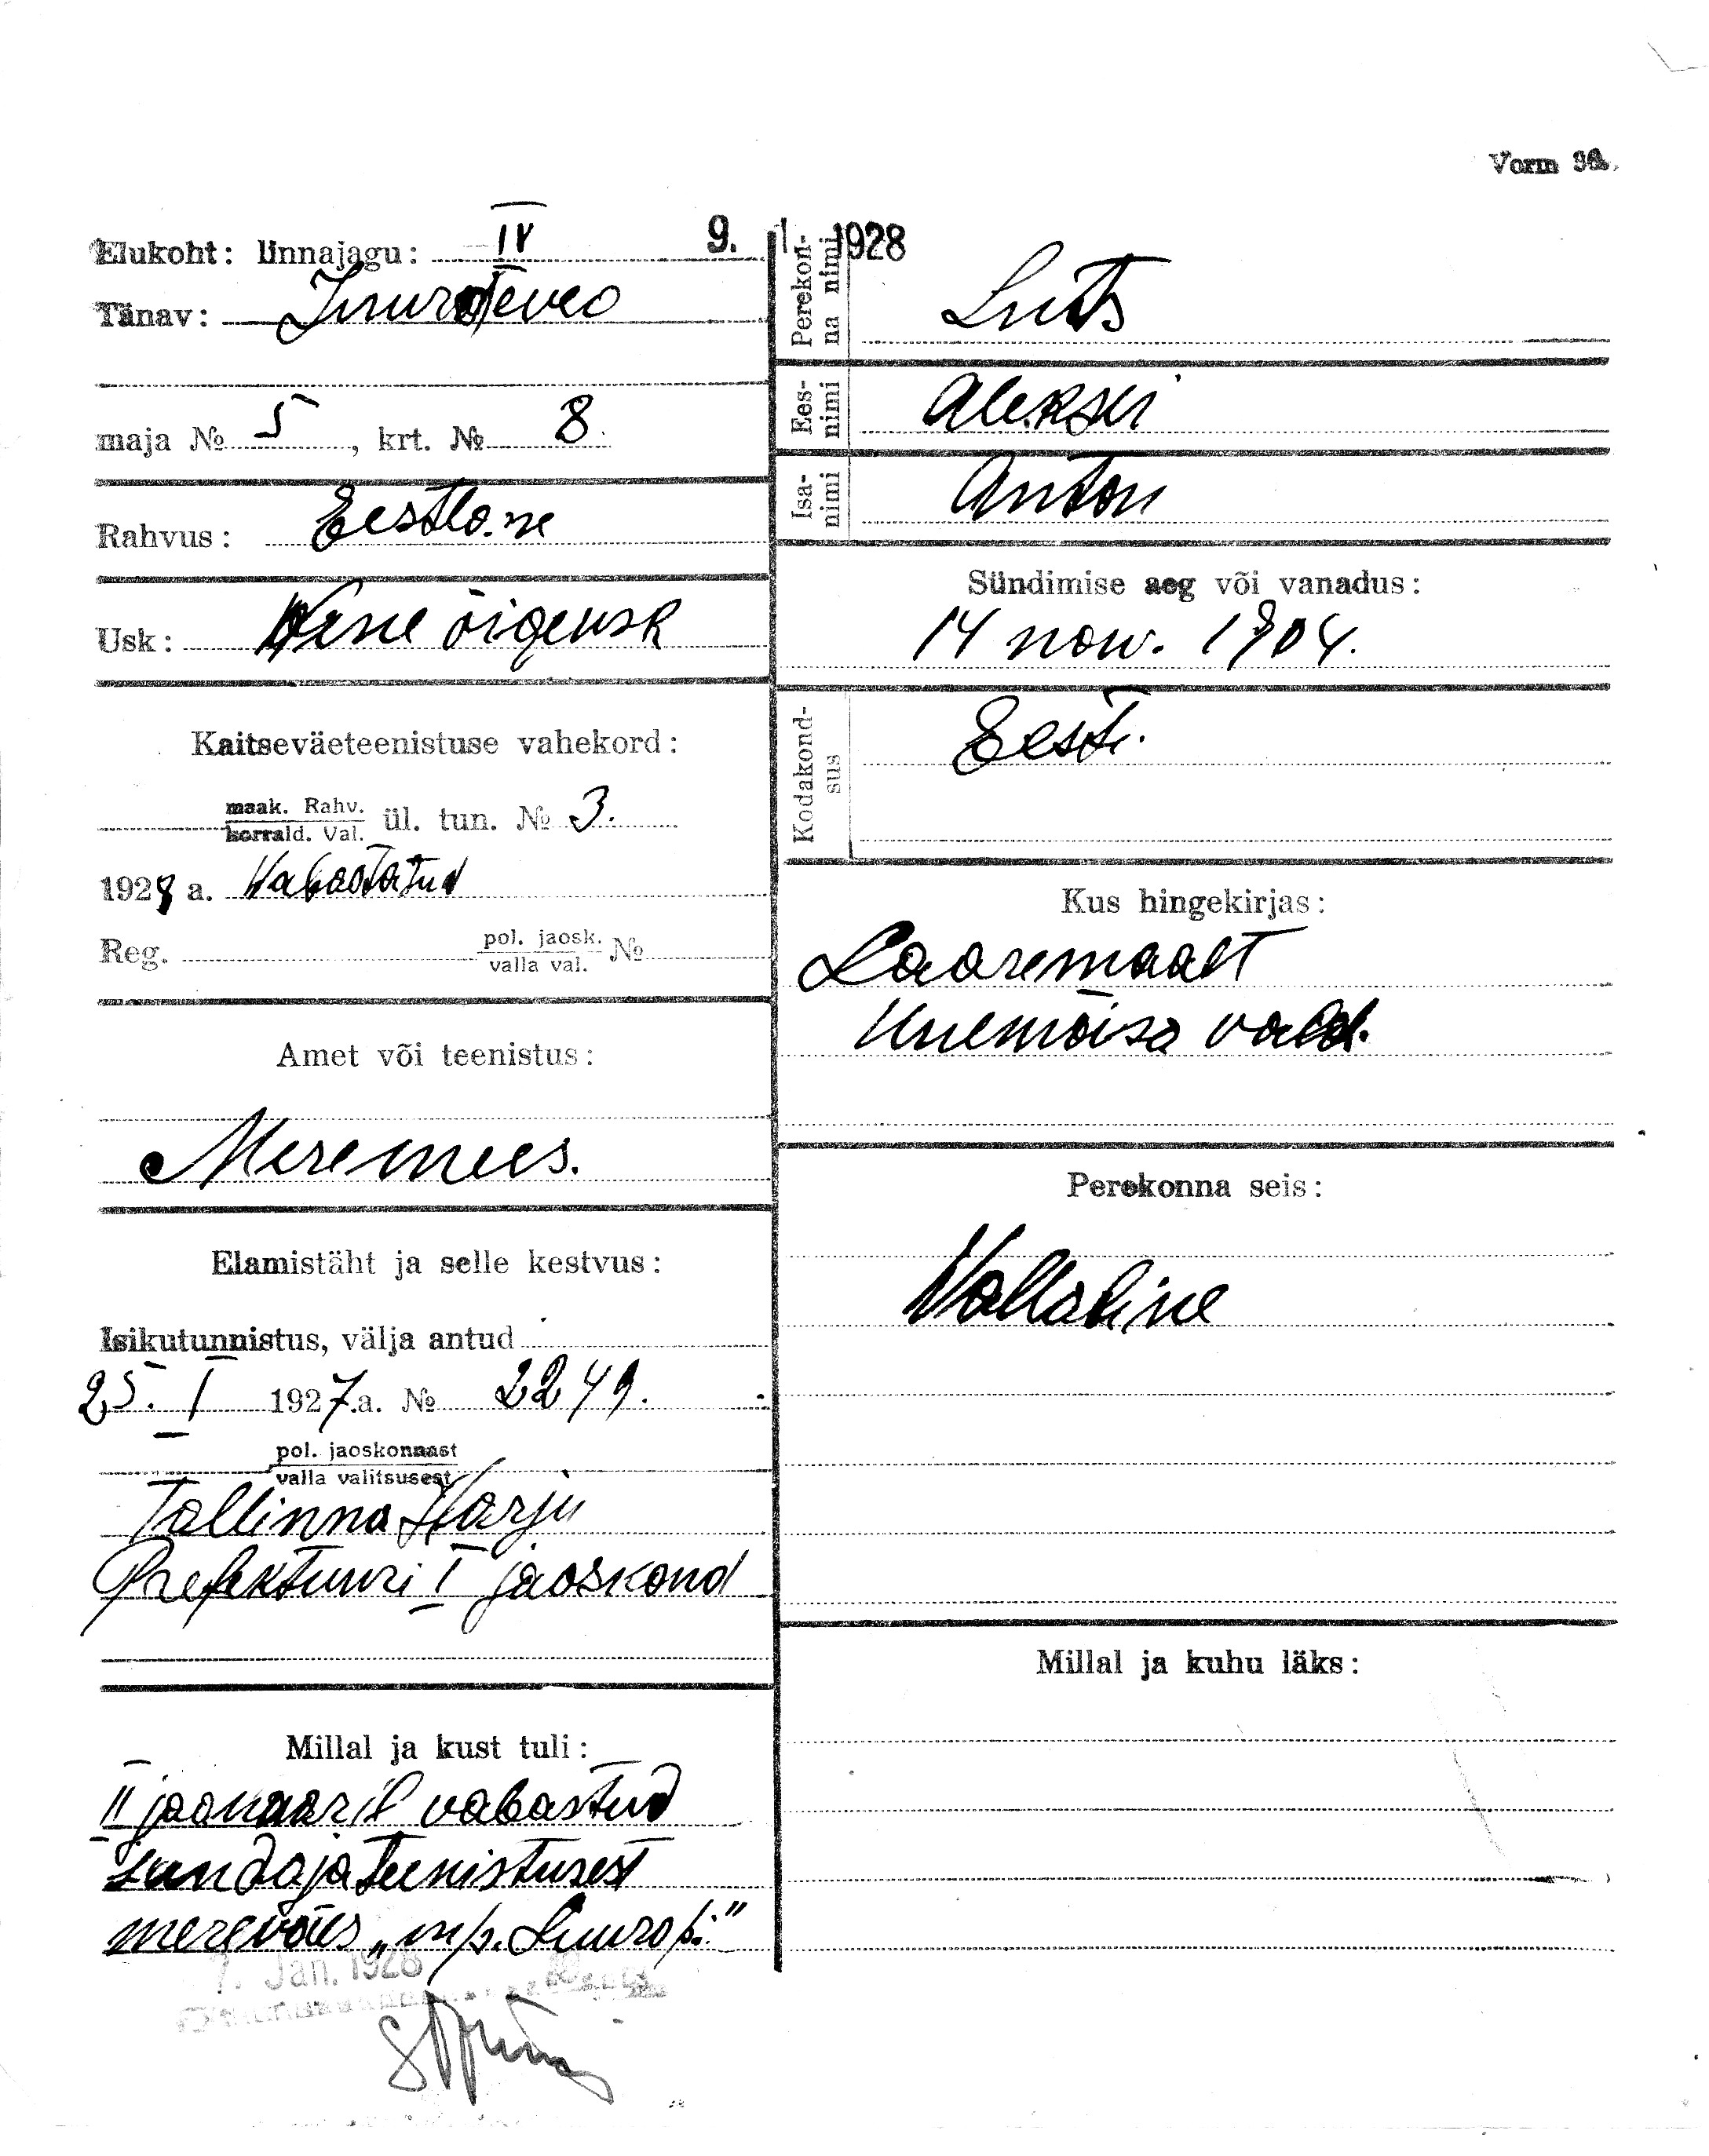 Vorm 36.
9. I. 1928
Elukoht: linnajagu: IV
Tänav:
maja № 5, krt. № 8.
Rahvus: Eestlane
Usk: Vene õigeusk
Kaitseväeteenistuse vahekord:
maak. Rahv.
korrald. Val. ül. tun. № 3.
1928 a. Vabastatud
Reg. pol. jaosk. №
valla val.
Amet või teenistus:
Meremees.
Elamistäht ja selle kestvus:
Isikutunnistus, välja antud
25. I 1927.a. № 2249.
pol. jaoskonnast
valla valitsusest
Tallinna Harju
Prefektuuri I jaoskond
Millal ja kust tuli:
II jaanuaril vabastud
sundaja teenistusest
mereväes „m/p. Suurop."
7. Jan. 1928
Perekon-
na nimi
Luts
Ees-
nimi
Aleksei
Isa-
nimi
Anton
Sündimise aeg või vanadus:
14 now. 1904.
Kodakond-
sus
Eesti.
Kus hingekirjas:
Saaremaalt
Uuemõisa vald.
Perekonna seis:
Vallaline
Millal ja kuhu läks: